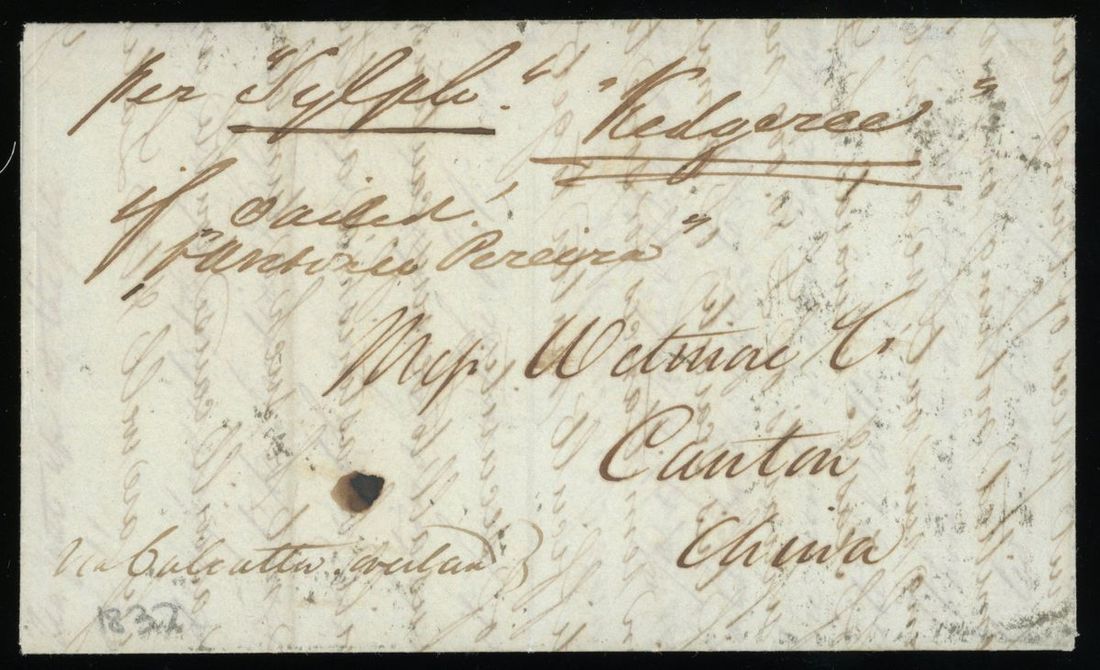 per "Sylph." "Kedgeree"
if sailed
"Antonio Pereira"
Mess Wetmore Co
Canton
China
Via Calcutta overland
1837